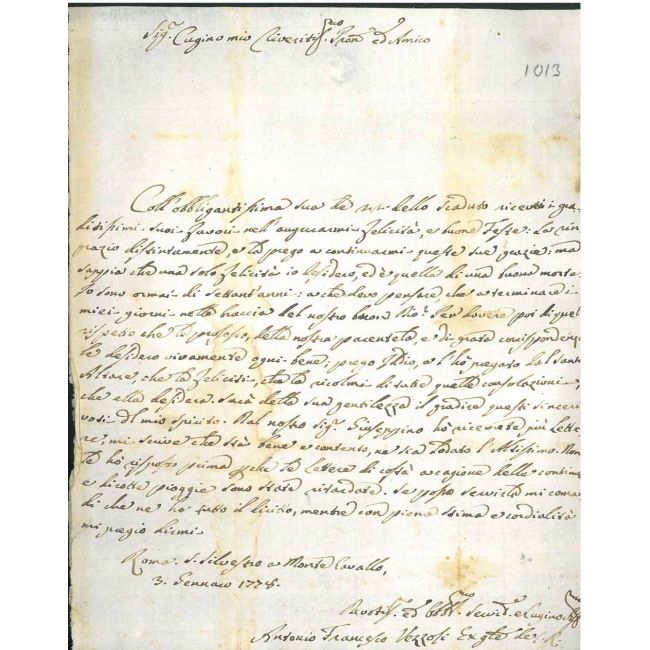 Sig.r Cugino mio Riveritiss.mo Pron. ed Amico
1013
Coll'obbligantissima sua de dello scaduto ricevei i gra-
ditissimi suoi favori nell'augurarmi felicità, e buone Feste: La rin-
grazio distintamente e la prego a continuarmi queste sue grazie: ma
sappia che una sola felicità io desidero, ed è quella di una buona morte.
Io sono ormai di settant'anni: a che devo pensare, che a terminare i
miei giorni nella traccia del nostro buon Per dovere poi di quel
rispetto che le professo, della nostra parentela, e di grata corrispondenza
le desidero vivamente ogni bene: prego Iddio, e l'hò pregato dal santo
Altare, che la feliciti, che la ricolmi di tutte quelle consolazioni,
che ella desidera. Sarà della sua gentilezza il gradire questi sinceri
voti del mio spirito. Dal nostro Sig.r Giuseppino hò ricevute più lette-
re; mi scrive che stà bene e contento, ne sia lodato l'Altissimo. Non
le hò risposto prima perche le lettere di costà a cagione delle continue
e dirotte pioggie sono state ritardate. Se posso servirla mi coman-
di che ne hà tutto il diritto, mentre con pienissima e cordialità
mi pregio dirmi
Roma. S. Silvestro a Monte Cavallo,
3. Gennaro 1778.
Devotiss. ed Obbl. Servid.e e Cugino
Antonio Francesco Vezzosi Ex gle de C. R.